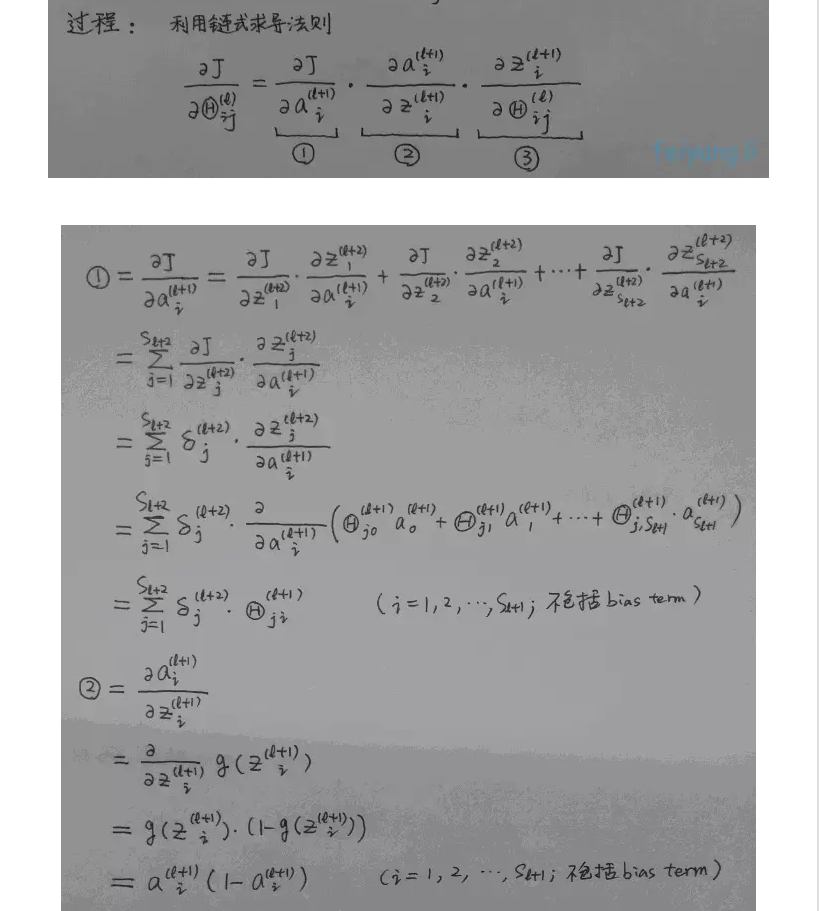 过程： 利用链式求导法则
∂J/∂Θ_{ij}^{(l)} = ∂J/∂a_i^{(l+1)} · ∂a_i^{(l+1)}/∂z_i^{(l+1)} · ∂z_i^{(l+1)}/∂Θ_{ij}^{(l)}
① ② ③
① = ∂J/∂a_i^{(l+1)} = ∂J/∂z_1^{(l+2)} · ∂z_1^{(l+2)}/∂a_i^{(l+1)} + ∂J/∂z_2^{(l+2)} · ∂z_2^{(l+2)}/∂a_i^{(l+1)} + ··· + ∂J/∂z_{S_{l+2}}^{(l+2)} · ∂z_{S_{l+2}}^{(l+2)}/∂a_i^{(l+1)}
= Σ_{j=1}^{S_{l+2}} ∂J/∂z_j^{(l+2)} · ∂z_j^{(l+2)}/∂a_i^{(l+1)}
= Σ_{j=1}^{S_{l+2}} δ_j^{(l+2)} · ∂z_j^{(l+2)}/∂a_i^{(l+1)}
= Σ_{j=1}^{S_{l+2}} δ_j^{(l+2)} · ∂/∂a_i^{(l+1)} (Θ_{j0}^{(l+1)} a_0^{(l+1)} + Θ_{j1}^{(l+1)} a_1^{(l+1)} + ··· + Θ_{j,S_{l+1}}^{(l+1)} · a_{S_{l+1}}^{(l+1)})
= Σ_{j=1}^{S_{l+2}} δ_j^{(l+2)} · Θ_{ji}^{(l+1)} (i=1,2,···,S_{l+1}; 不包括bias term)
② = ∂a_i^{(l+1)}/∂z_i^{(l+1)}
= ∂/∂z_i^{(l+1)} g(z_i^{(l+1)})
= g(z_i^{(l+1)})·(1-g(z_i^{(l+1)}))
= a_i^{(l+1)}(1-a_i^{(l+1)}) (i=1,2,···,S_{l+1}; 不包括bias term)